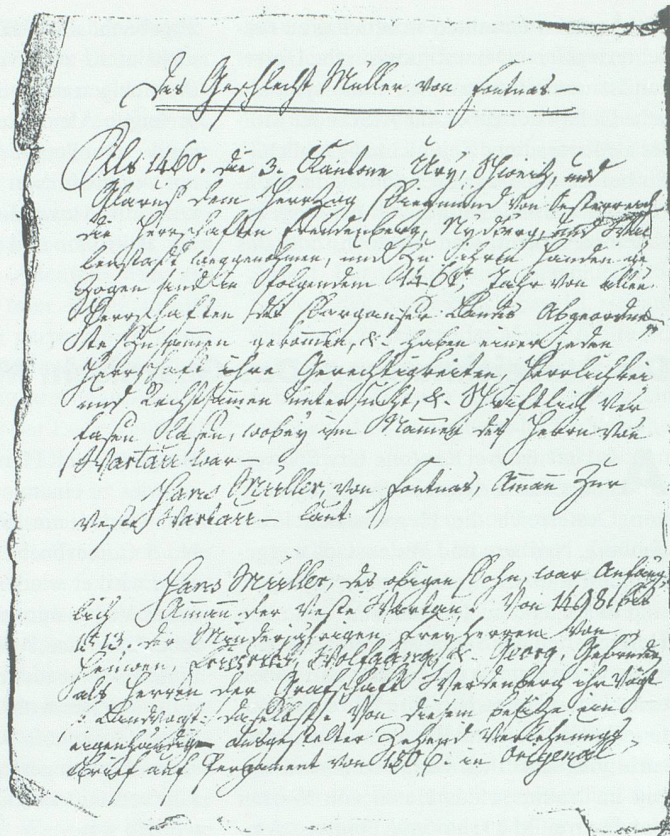 Das Geschlecht Müller von Fontnas –
Als 1460. die 3. Kantone Ury, Schweitz, und
Glarus dem Herrtzog Siegmund von Oesterreich
die Herrschaften Freudenberg, Nydberg, und Wal
lenstatt weggenohmen, und zu Ihren Handen ge
zogen sind in folgendem 1461t Jahr von allen
Herrschaften des Sarganser Lands Abgeordne
te Zusammen gekommen, & haben einer jeden
Herrschaft ihre Gerechtigkeiten, Herrlichkei
und Rechtsamen untersucht, & Schriftlich Ver
fasen lasen, wobey im Nammen des Herrn von
Wartau war
Hans Müller, von Fontnas, Amañ Zur
Veste Wartau – laut
Hans Müller, des obigen Sohn, war Anfäng
lich Amañ der Veste Wartau. Von 1498 bis
1513. der Minderjährigen Freyherren von
Heuwen, Wolfgang, & Georg, Gebrüder
als Herren der Grafschaft Werdenberg ihr Vogt
: Landvogt: daselbst. Von diesem besitze ein
eigenhändig ausgestelter Zehend Verleihungs
Brief auf Pergament von 1506 in Original